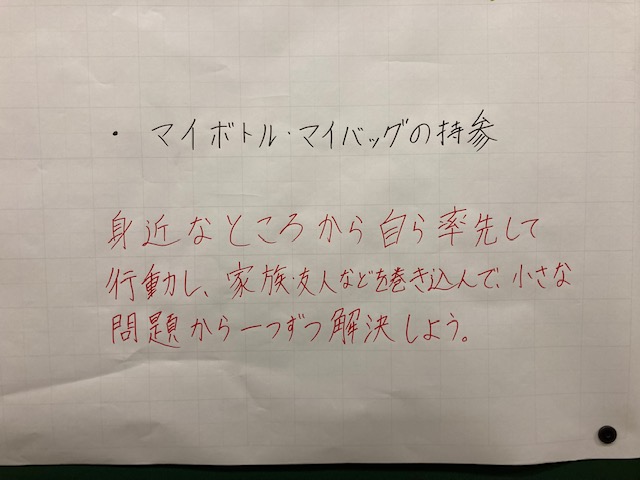 ・ マイボトル・マイバッグの持参
身近なところから自ら率先して
行動し、家族・友人などを巻き込んで、小さな
問題から一つずつ解決しよう。